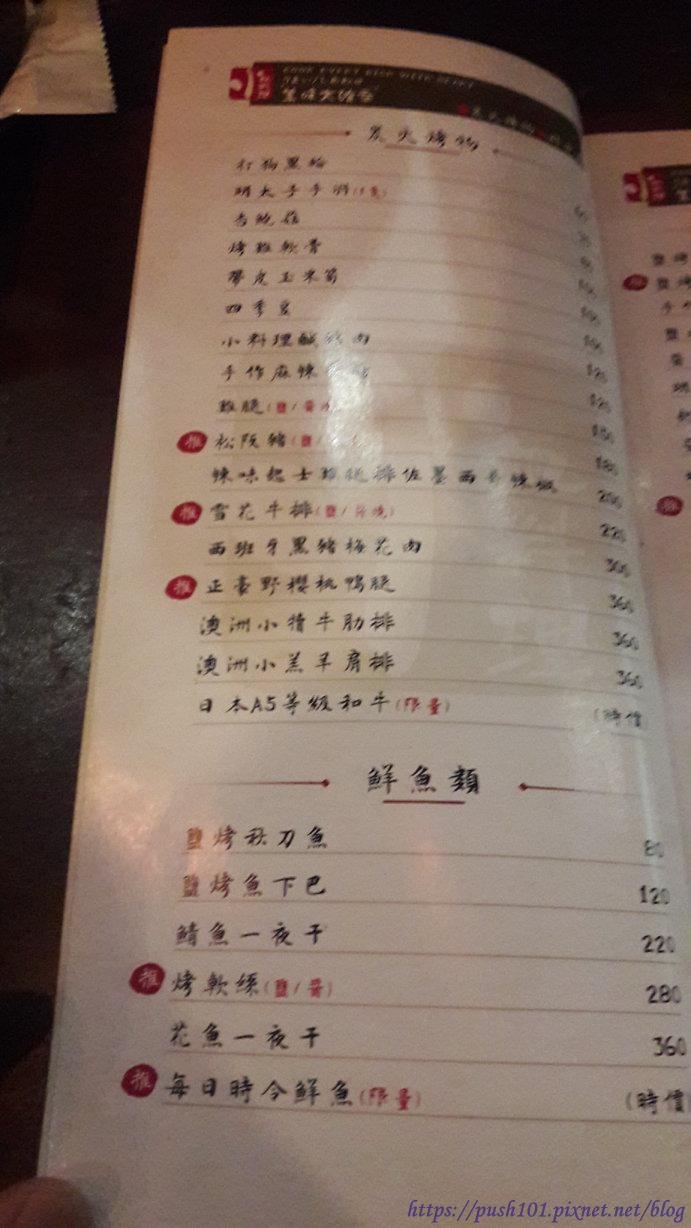 COOK EVERY DISH WITH HEART
美味大確幸
炭火烤物
打狗黑輪
明太子手羽(限量)
杏鮑菇
烤雞軟骨
帶皮玉米筍 100
四季豆 100
小料理鹹豬肉 120
手作麻辣 120
雞腿(鹽/醬燒) 150
推 松阪豬(鹽/ 180
辣味起士雞腿排佐墨西哥辣椒 200
推 雪花牛排(鹽/醬燒) 220
西班牙黑豬梅花肉 300
推 正豪野櫻桃鴨腿 360
澳洲小犢牛肋排 360
澳洲小羔羊肩排 360
日本A5等級和牛(限量) (時價)
鮮魚類
鹽烤秋刀魚 80
鹽烤魚下巴 120
鯖魚一夜干 220
推 烤軟絲(鹽/醬) 280
花魚一夜干 360
推 每日時令鮮魚(限量) (時價)
https://push101.pixnet.net/blog